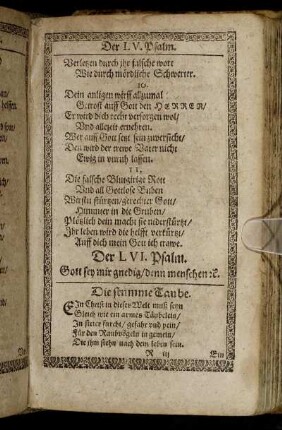 Der LV. Psalm.
Verletzen durch jhr falsche wort
Wie durch mördliche Schwerter.
10.
Dein anligen wirff allzumal
Getrost auff Gott den HERREN/
Er wird dich recht versorgen wol/
Vnd allzeit ernehren.
Wer auff Gott setzt sein zuversicht/
Den wird der trewe Vater nicht
Ewig in vnruh lassen.
11.
Die falsche Blutgirige Rott
Vnd all Gottlose Buben
Wirstu stürtzen/gerechter Gott/
Hinunter in die Gruben/
Plötzlich dein macht sie niderstürtzt/
Jhr leben wird die helfft verkürtzt/
Auff dich mein Gott ich trawe.
Der LVI. Psalm.
Gott sey mir gnedig/denn menschen ꝛc.
Die stumme Taube.
EIn Christ in dieser Welt muß seyn
Gleich wie ein armes Täubelein/
In steter furcht/gefahr vnd pein/
Für den Raubvögeln in gemein/
Die jhm stehn nach dem leben sein.
R iij Ein